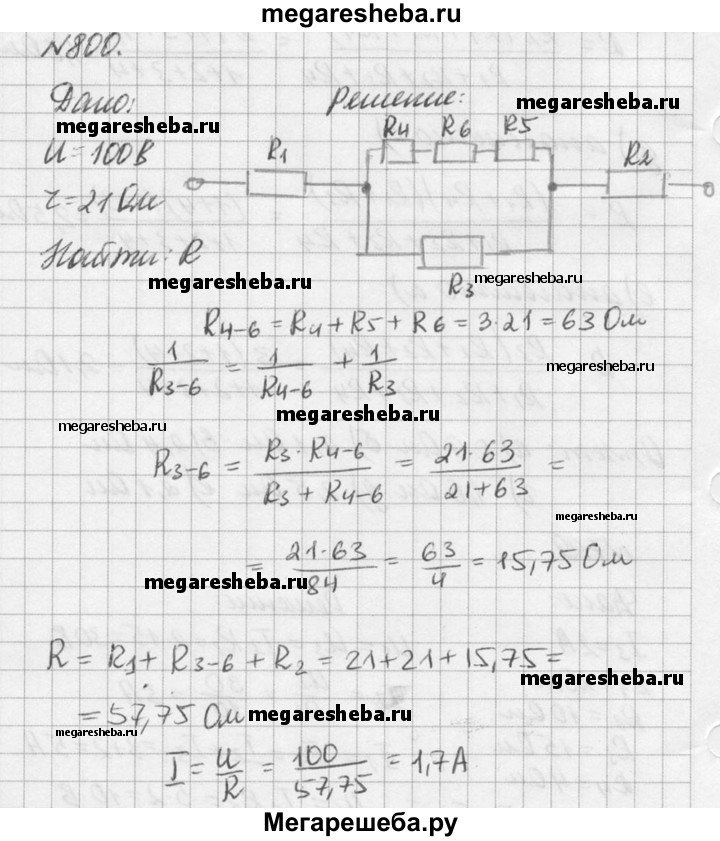 megaresheba.ru
N800.
Дано: Решение:
megaresheba.ru
megaresheba.ru
U = 100В
r = 21 Ом
Найти: R
R1 R4 R6 R5 R2
R3
megaresheba.ru
megaresheba.ru
R4-6 = R4 + R5 + R6 = 3·21 = 63 Ом
1/R3-6 = 1/R4-6 + 1/R3
megaresheba.ru
megaresheba.ru
megaresheba.ru
R3-6 = R3·R4-6/R3 + R4-6 = 21·63/21+63 =
megaresheba.ru
= 21·63/84 = 63/4 = 15,75 Ом
megaresheba.ru
R = R1 + R3-6 + R2 = 21+21+15,75 =
megaresheba.ru
= 57,75 Ом
megaresheba.ru
megaresheba.ru
I = U/R = 100/57,75 = 1,7 А
Мегарешеба.ру